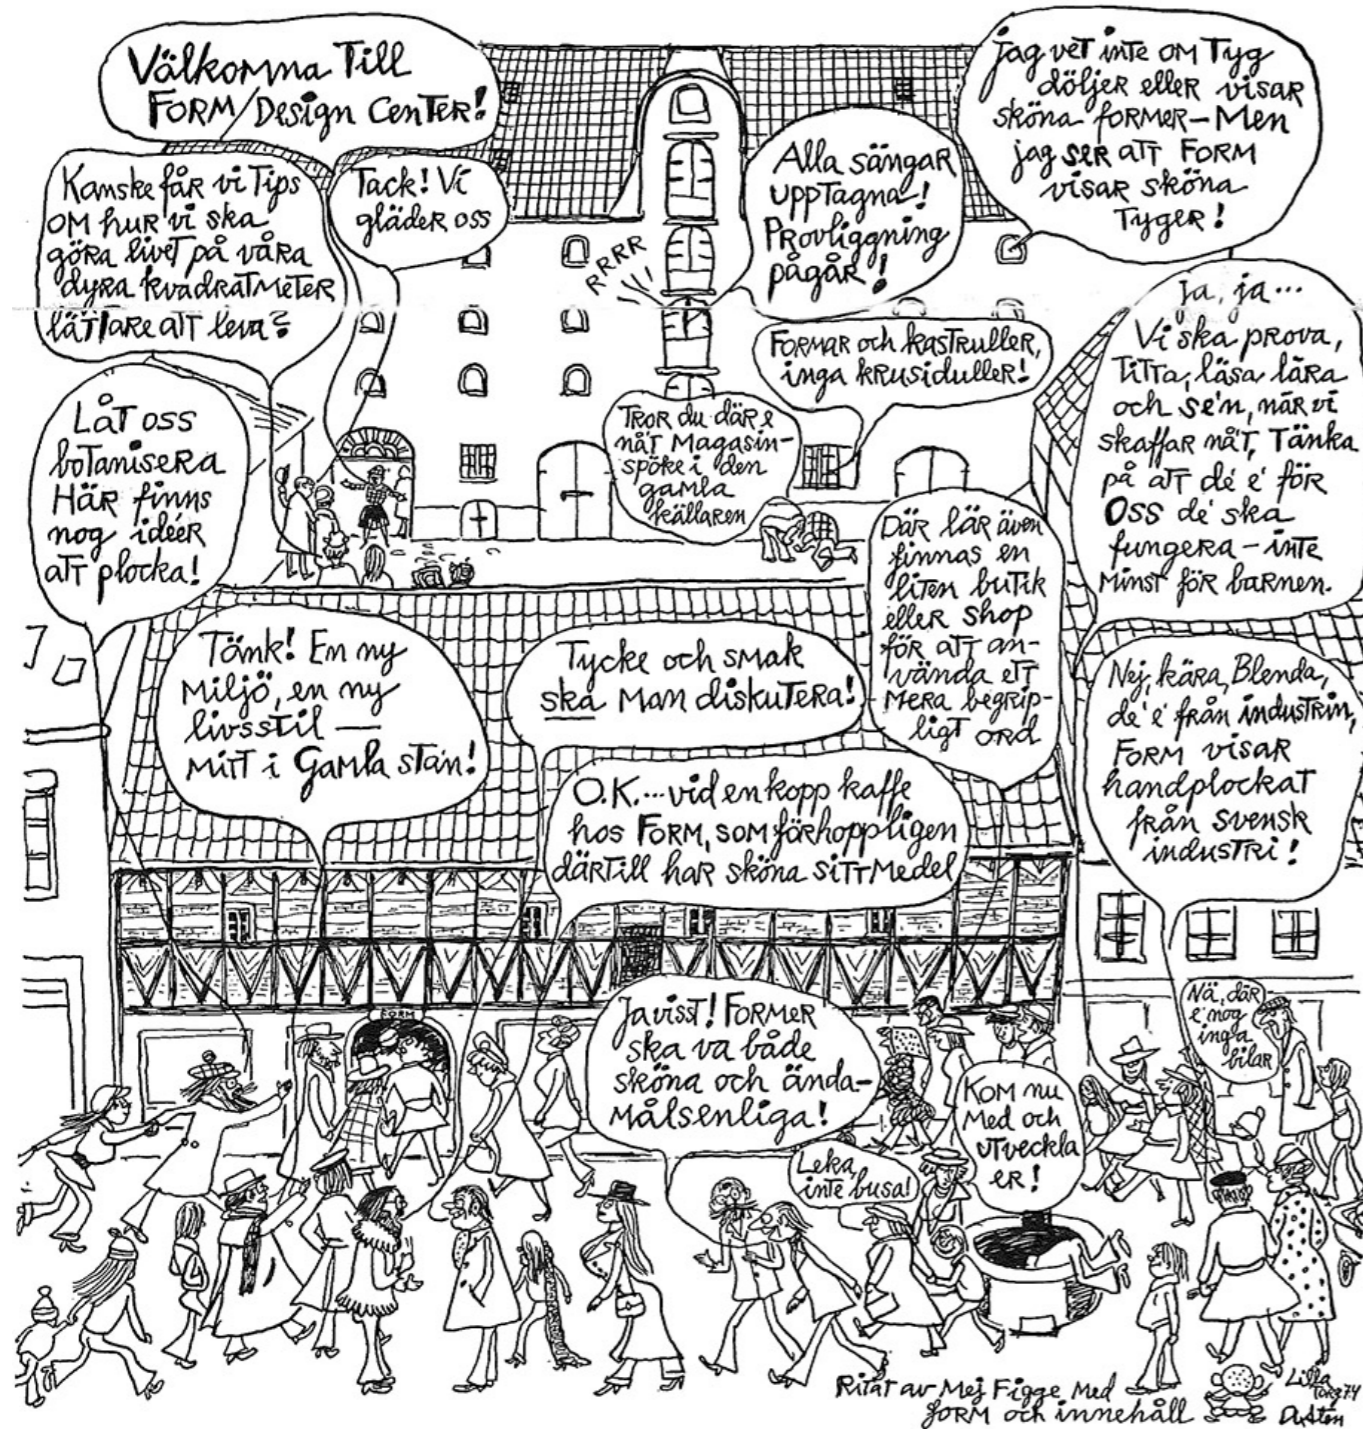 Välkomna Till
FORM/Design Center!
Jag vet inte om Tyg
döljer eller visar
sköna former – Men
jag ser att FORM
visar sköna
Tyger!
Kanske får vi Tips
om hur vi ska
göra livet på våra
dyra kvadratmeter
lättare att leva?
Tack! Vi
gläder oss
Alla sängar
upptagna!
Provliggning
pågår!
RRRRR
Formar och kastruller,
inga krusiduller!
Ja, ja...
Vi ska prova,
titta, läsa lära
och se'n, när vi
skaffar nå't, Tänka
på att de' e' för
Oss de' ska
fungera – inte
minst för barnen.
Låt oss
botanisera
Här finns
nog idéer
att plocka!
Tror du där e
nå't Magasin-
spöke i den
gamla
källaren
Där lär även
finnas en
liten butik
eller shop
för att an-
vända ett
mera begrip-
ligt ord
Tänk! En ny
miljö, en ny
livsstil —
mitt i Gamla stan!
Tycke och smak
ska man diskutera!
Nej, kära Blenda,
de' e' från industrin,
FORM visar
handplockat
från svensk
industri!
O.K.... vid en kopp kaffe
hos FORM, som förhoppligen
därtill har sköna sittmedel
FORM
Javisst! Former
ska va både
sköna och ända-
målsenliga!
Nä, där
e' nog
inga
bilar
Kom nu
med och
utveckla
er!
Leka,
inte busa!
Ritat av Mej Figge med
form och innehåll
Lilla
Torg 74